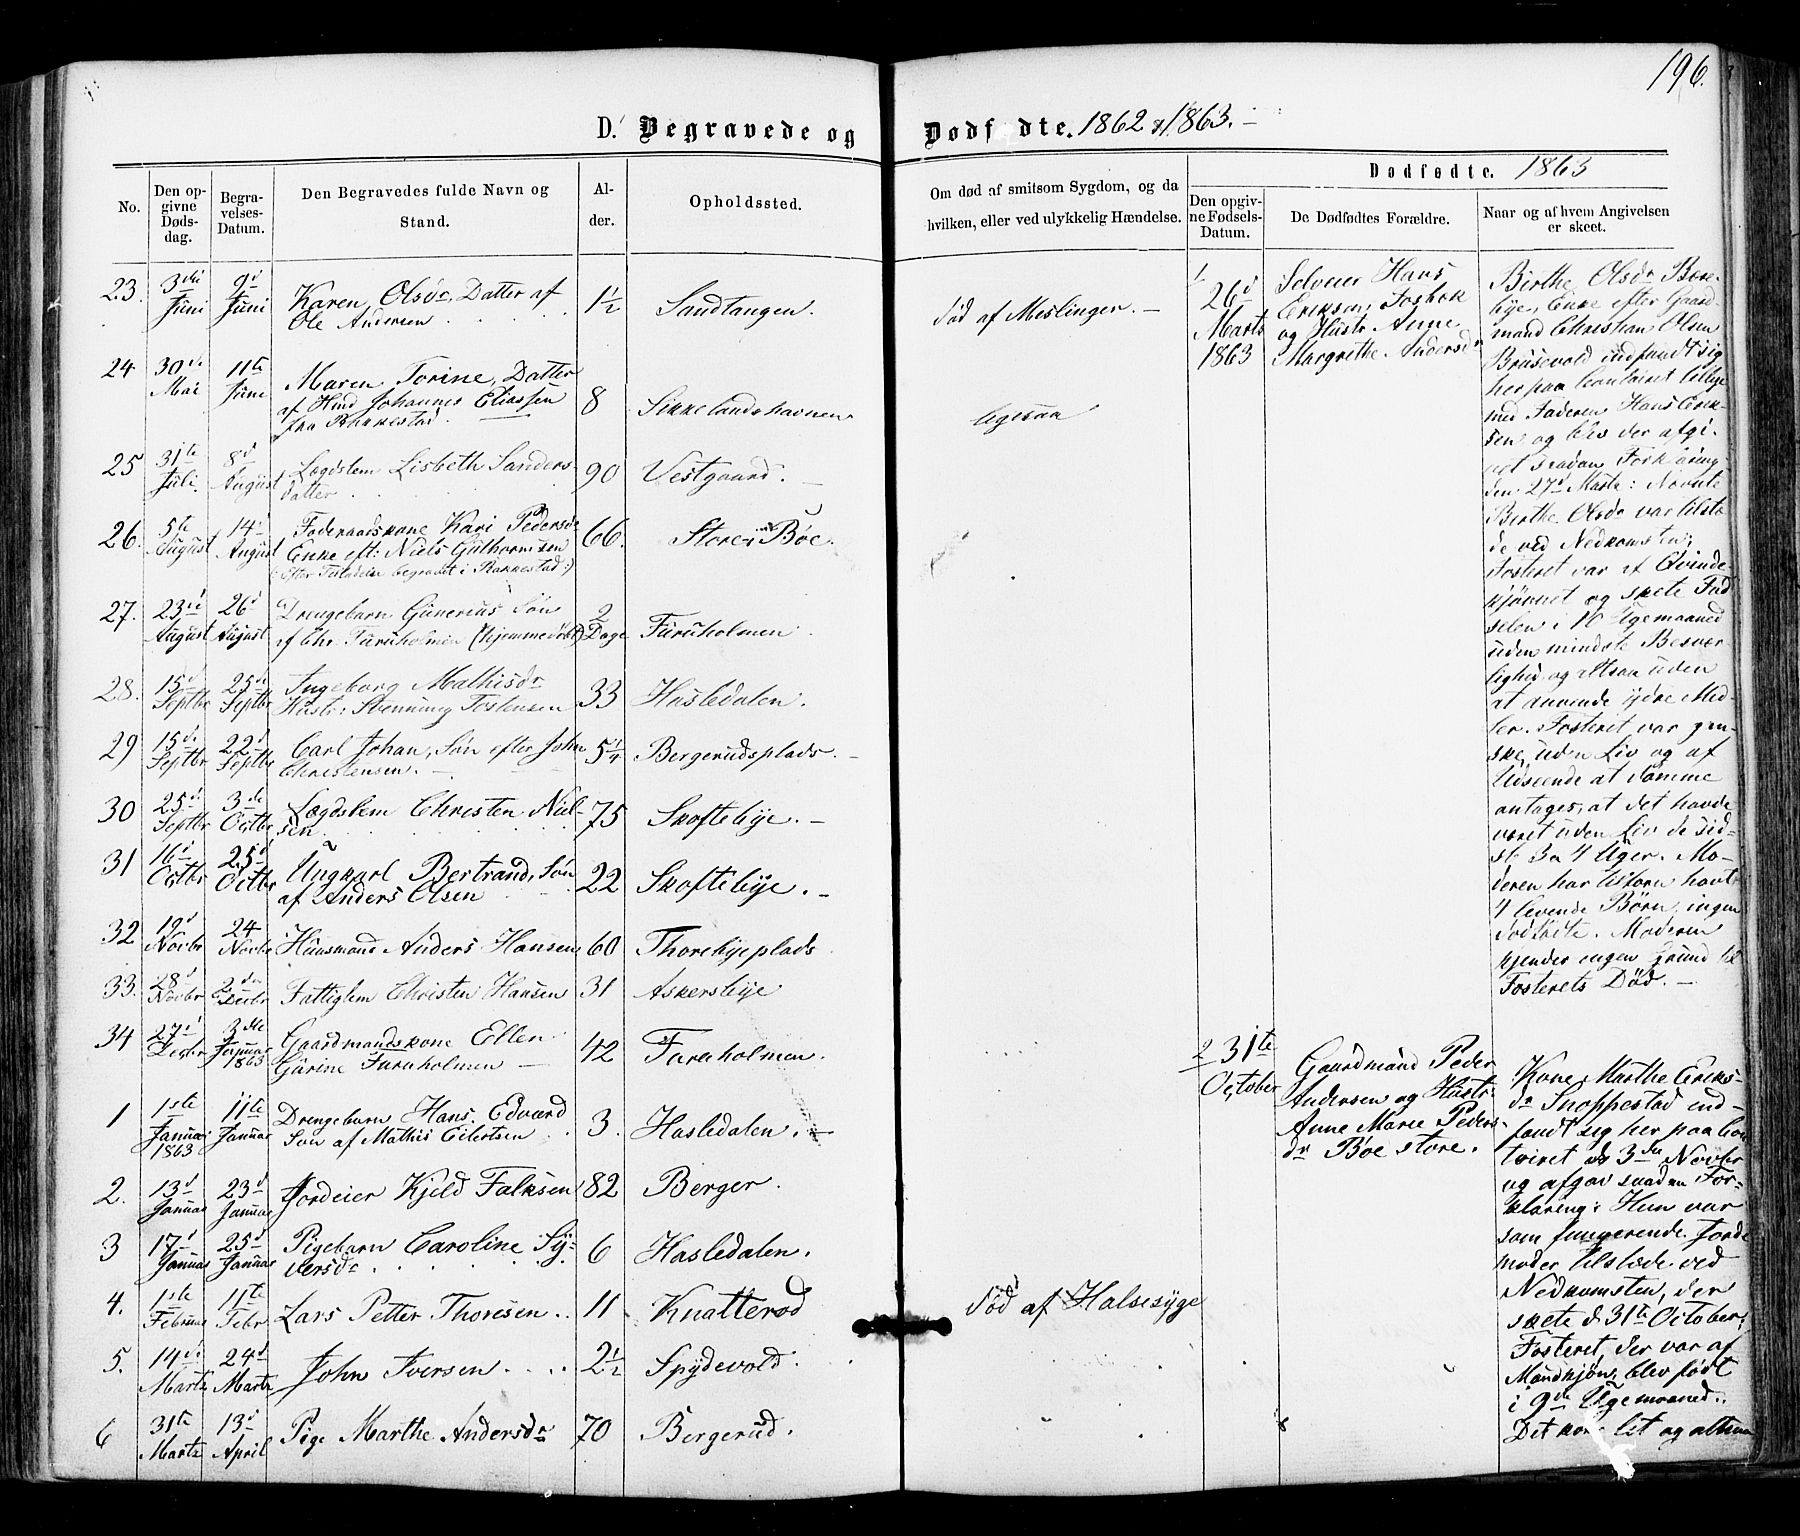 196.
D. Begravede og Dødfødte. 1862 & 1863. –
Dødfødte. 1863
No.
Den op-
givne
Døds-
dag.
Begra-
velses-
Datum.
Den Begravedes fulde Navn og
Stand.
Al-
der.
Opholdssted.
Om død af smitsom Sygdom, og da
hvilken, eller ved ulykkelig Hændelse.
Den opgiv-
ne Fødsels-
Datum.
De Dødfødtes Forældre.
Naar og af hvem Angivelsen
er skeet.
23. 3die Juni 9d Juni Karen Olsdr, Datter af
Ole Andersen 1½ Sandtangen. død af Meslinger. –
24. 30te Mai 11te Juni Maren Torine, Datter
af Hmd Johannes Eliassen
fra Rakkestad. 8 Sikkelandshavnen ligesaa
25 31te Juli. 8d August Lægdslem Lisbeth Sanders-
datter 90 Vestgaard. –
26. 5te August 14d August Føderaadskone Kari Pedersdr
Enke eft: Niels Guthormsen
(: Efter Tilladelse begravet i Rakkestad:) 66. Store Bøe.
27. 23de August 26d August Drengebarn Gunerius Søn
af Chr. Furuholmen (hjemmedøbt) 2 Dage Furuholmen.
28. 15d Septbr 25de Septbr Ingeborg Mathisdr
Hustr: Svenning Torstensen 33 Hasledalen.
29 15de Septbr 22d Septbr Carl Johan, Søn efter John
Christensen. – 5¼ Bergerudsplads. –
30 25d Septbr 3die Octbr Lægdslem Christen Niel-
sen 75 Skoftebye. –
31 16d Octbr 25d Octbr Ungkarl Bertrand, Søn
af Anders Olsen 22 Skoftebye. –
32 19d Novbr 24 Novbr Huusmand Anders Hansen 60 Thorebyeplads
33. 28d Novbr 2den Decbr Fattiglem Christen Hansen 31 Askersbye
34 27d Decbr 3die Januar 1863 Gaardmandskone Ellen
Gurine Furuholmen – 42 Furuholmen.
1 1ste Januar 1863 11te Januar Drengebarn Hans Edvard
Søn af Mathis Eilertsen 3. Hasledalen. –
2. 13d Januar 23d Januar Jordeier Kjeld Falksen 82 Berger.
3 17d Januar 25d Januar Pigebarn Caroline Sy-
versdr 6 Hasledalen.
4. 1ste Februar 11te Febr Lars Petter Thoresen. 11 Knatterød død af Halsesyge
5. 14de Marts 24d Marts John Iversen 2½ Spydevold.
6 31te Marts 13d April Pige Marthe Andersdr 70 Bergerud.
1/ 26d
Marts
1863
Selveier Hans
Eriksen, Fosbøk
og Hustr. Anne
Margrethe Andersdr
Birthe Olsdr Børe-
bye, Enke efter Gaard
mand Christian Olsen
Brusevold indfandt sig
her paa Contoiret tillige
med Faderen Hans Erik-
sen og blev der afgi-
vet saadan Forklaring
den 27d Marts: Nævnte
Birthe Olsdr var tilste-
de ved Nedkomsten;
Fosteret var af Qvinde-
kjønnet og skete Fød
selen i 10 Ugemaaned
uden mindste Besvær
lighed og altsaa uden
at anvende ydre Mid-
ler. Fosteret var gan-
ske uden Liv og af
Udseende at dømme
antages, at det havde
været uden Liv de sid-
ste 3 a 4 Uger. Mo-
deren har tilforn havt
4 levende Børn, ingen
dødfødte. Moderen
kjender ingen Grund til
Fosterets Død. –
2 31te
October
Gaardmand Peder
Andersen og Hustr:
Anne Marie Peders-
dr Bøe store.
Kone Marthe Eriks-
dr Snoppestad ind-
fandt sig her paa Con
toiret d. 3die Novbr
og afgav saadan For-
klaring: Hun var
som fungerende Jorde
moder tilstæde ved
Nedkomsten, der
skete d. 31te October,
Fosteret, der var af
Mandkjøn, blev født
i 9de Ugemaaned.
Det kom let og